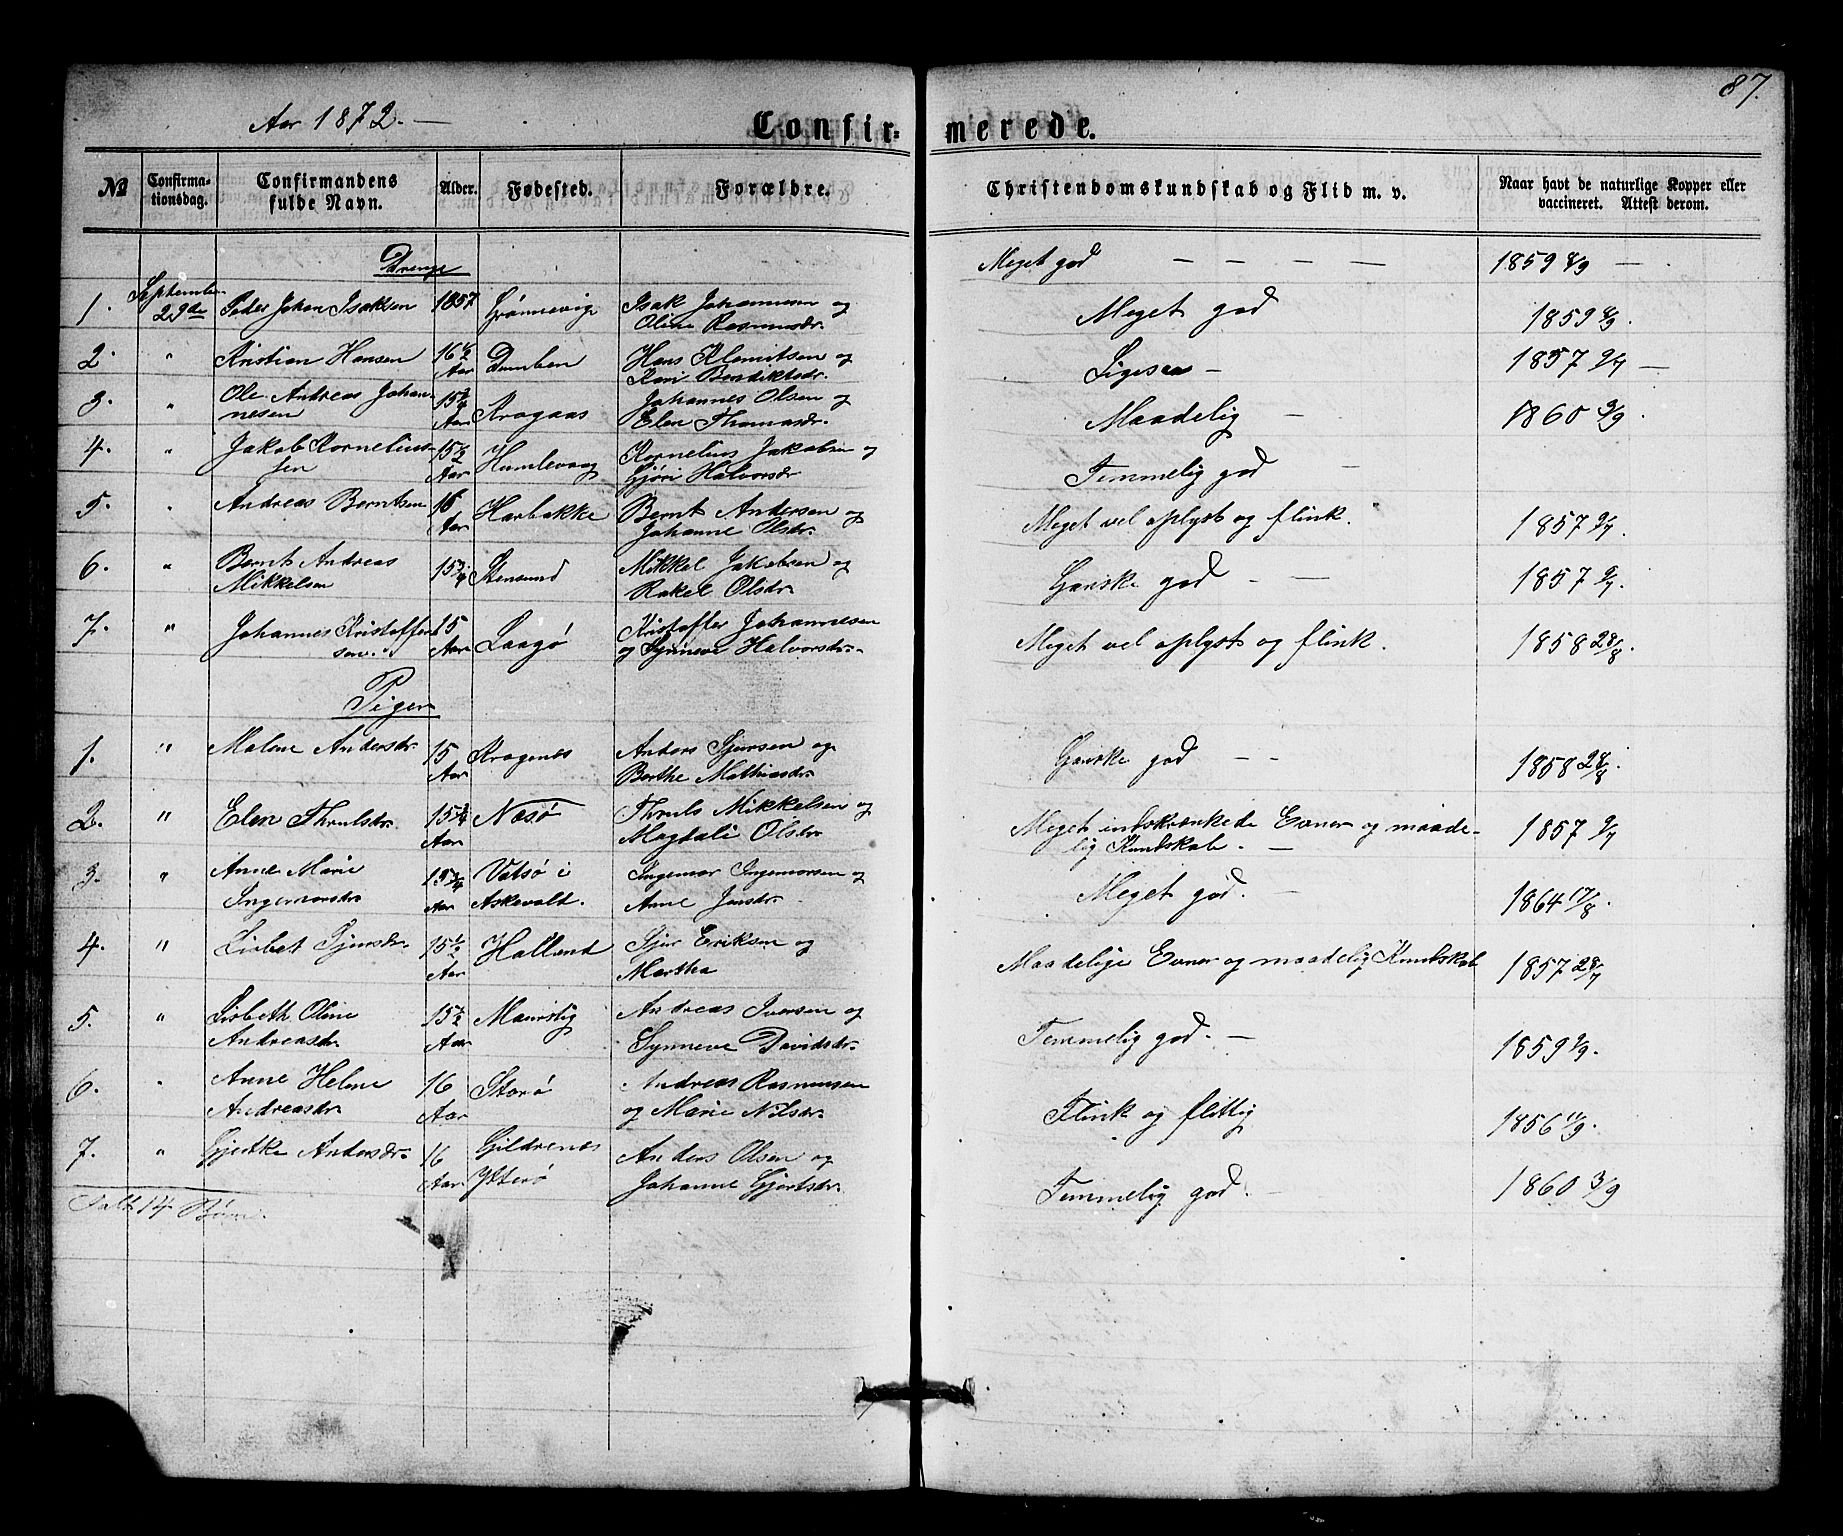 87.
Aar 1872. —
Confirmerede.
No
Confirmationsdag.
Confirmandens fulde Navn.
Alder.
Fødested.
Forældre.
Christendomskundskab og Flid m. v.
Naar havt de naturlige Kopper eller vaccineret. Attest derom.
Drenge
Meget god — — — — 1859 8/9 —
1. September 29de Peder Johan Isaksen 1857 Grønnevig Isak Johannesen og
Oline Rasmusdr. Meget god 1859 8/9.
2. " Kristian Hansen 16 1/2 Aar Dumben Hans Klemitsen og
Kari Bendiktsdr. Ligesaa — 1857 9/7 —
3. " Ole Andreas Johan-
nesen 15 3/4 Aar Kragaas Johannes Olsen og
Elen Thomasdr. Maadelig — 1860 3/9.
4. " Jakob Kornelius-
sen 15 1/2 Aar Humlevaag Kornelius Jakobsen og
Gjøri Halvorsdr. Temmelig god —
5. " Andreas Berntsen 16 Aar Harbakke Bernt Andersen og
Johanne Olsdr. Meget vel oplyst og flink. 1857 9/7.
6. " Bernt Andreas
Mikkelsen 15 3/4 Stensund Mikkel Jakobsen og
Rakel Olsdr. Ganske god — — 1857 9/7.
7. " Johannes Kristoffer-
sen. 15 Aar Laagø Kristoffer Johannesen
og Synneve Halvorsdr. Meget vel oplyst og flink. 1858 28/8.
Piger
1. " Malene Andersdr. 15 Aar Kragenæs Anders Sjursen og
Berthe Mathiasdr. Ganske god — — 1858 28/8.
2. " Elen Thrulsdr. 15 3/4 Aar Næsø Thruls Mikkelsen og
Magdali Olsdr. Meget indskrænkede Evner og maade-
lig Kundskab. — 1857 9/7
3. " Anne Marie
Ingemarsdr. 15 3/4 Aar Vatsø i
Askevold. Ingemar Ingemarsen og
Anne Jensdr. Meget god. — 1864 17/8.
4. " Lisbet Sjursdr. 15 1/2 Aar Halland Sjur Eriksen og
Martha Maadelige Evner og maadelig Kundskab 1857 28/7
5. " Lisbeth Oline
Andreasdr. 15 1/2 Aar Maurstig Andreas Iversen og
Synneve Davidsdr. Temmelig god. — 1859 9/9.
6. " Anne Helene
Andreasdr. 16 Aar Storø Andreas Rasmusen
og Marie Nilsdr. Flink og flittig 1856 11/9.
7. " Gjertke Andersdr. 16 Aar Gildrenæs
Ytterø Anders Olsen og
Johanne Gjertsdr. Temmelig god. — 1860 3/9
Ialt 14 Børn.